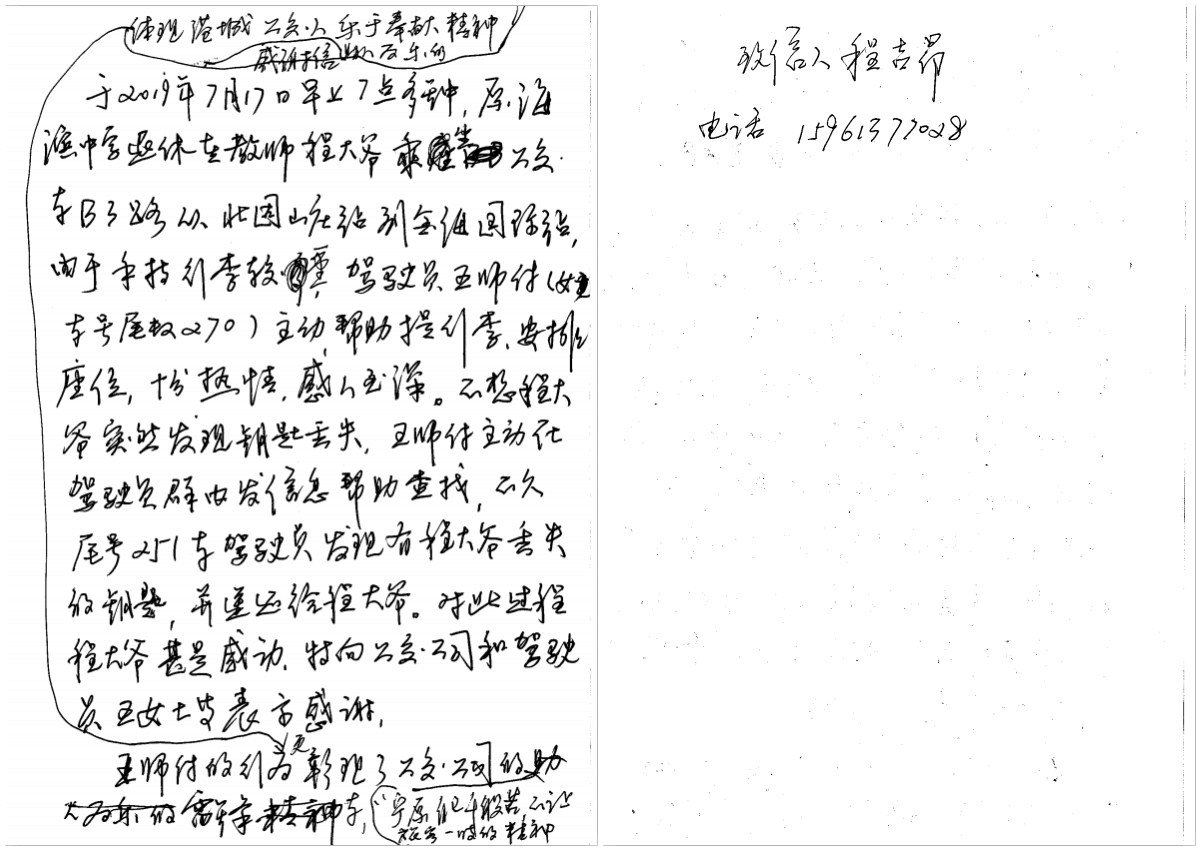 体现港城公交人乐于奉献精神
感谢信
于2019年7月17日早上7点多钟，原海
滨中学退休在教师程大爷乘坐公交
车B3路从北固山庄站到全组团环站，
由于手持行李较重，驾驶员王师付（女
车号尾数270）主动帮助提行李、安排
座位，十分热情，感人至深。不想程大
爷突然发现钥匙丢失，王师付主动在
驾驶员群内发信息帮助查找，不久
尾号251车驾驶员发现有程大爷丢失
的钥匙，并送还给程大爷。对此过程
程大爷甚是感动，特向公交公司和驾驶
员王女士表示感谢，
王师付的行为更彰现了公交公司的助
人为乐的雷锋精神
"宁愿自己千般苦，不让
旅客一时的精神
致信人 程吉昂
电话 15961377028